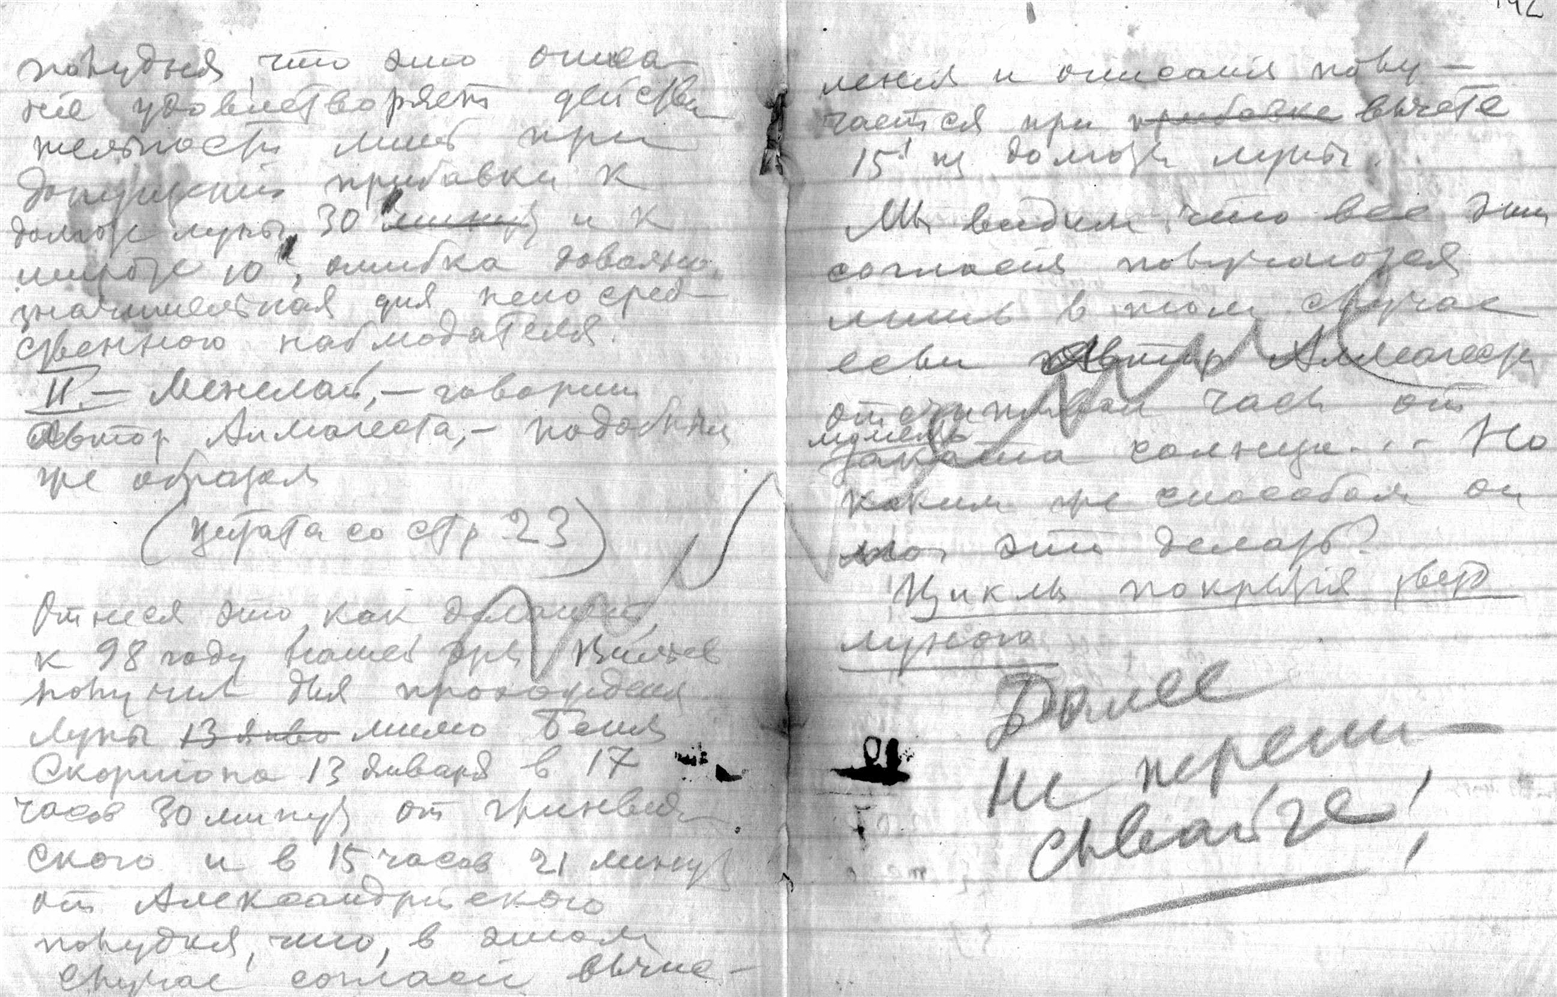 полудня, что это описа-
ние удовлетворяет действи
тельности лишь при
допущении прибавки к
долготе луны 30' минут и к
широте 10', ошибка довольно
значительная для непосред-
ственного наблюдателя.
II.– Менелай, – говорит
Автор Алмагеста, – подобным
же образом
(цитата со стр 23)
Отнеся это, как делают,
к 98 году нашей эры
получил для прохождения
луны 13 янва мимо Беты
Скорпиона 13 января в 17
часов 30 минут от Гринвич
ского и в 15 часов 21 минут
от Александрийского
полудня, что, в этом
случае согласие вычис-
192
ления и описания полу-
чается при прибавке вычете
15' из долготы луны.
Мы видим, что все эти
согласия получаются
лишь в том случае
если Автор Алмагеста
отсчитывал часы от
момента
заката солнца... Но
каким же способом он
мог это делать?
Циклы покрытия звезд
луною
Далее
не перепи-
сывайте!